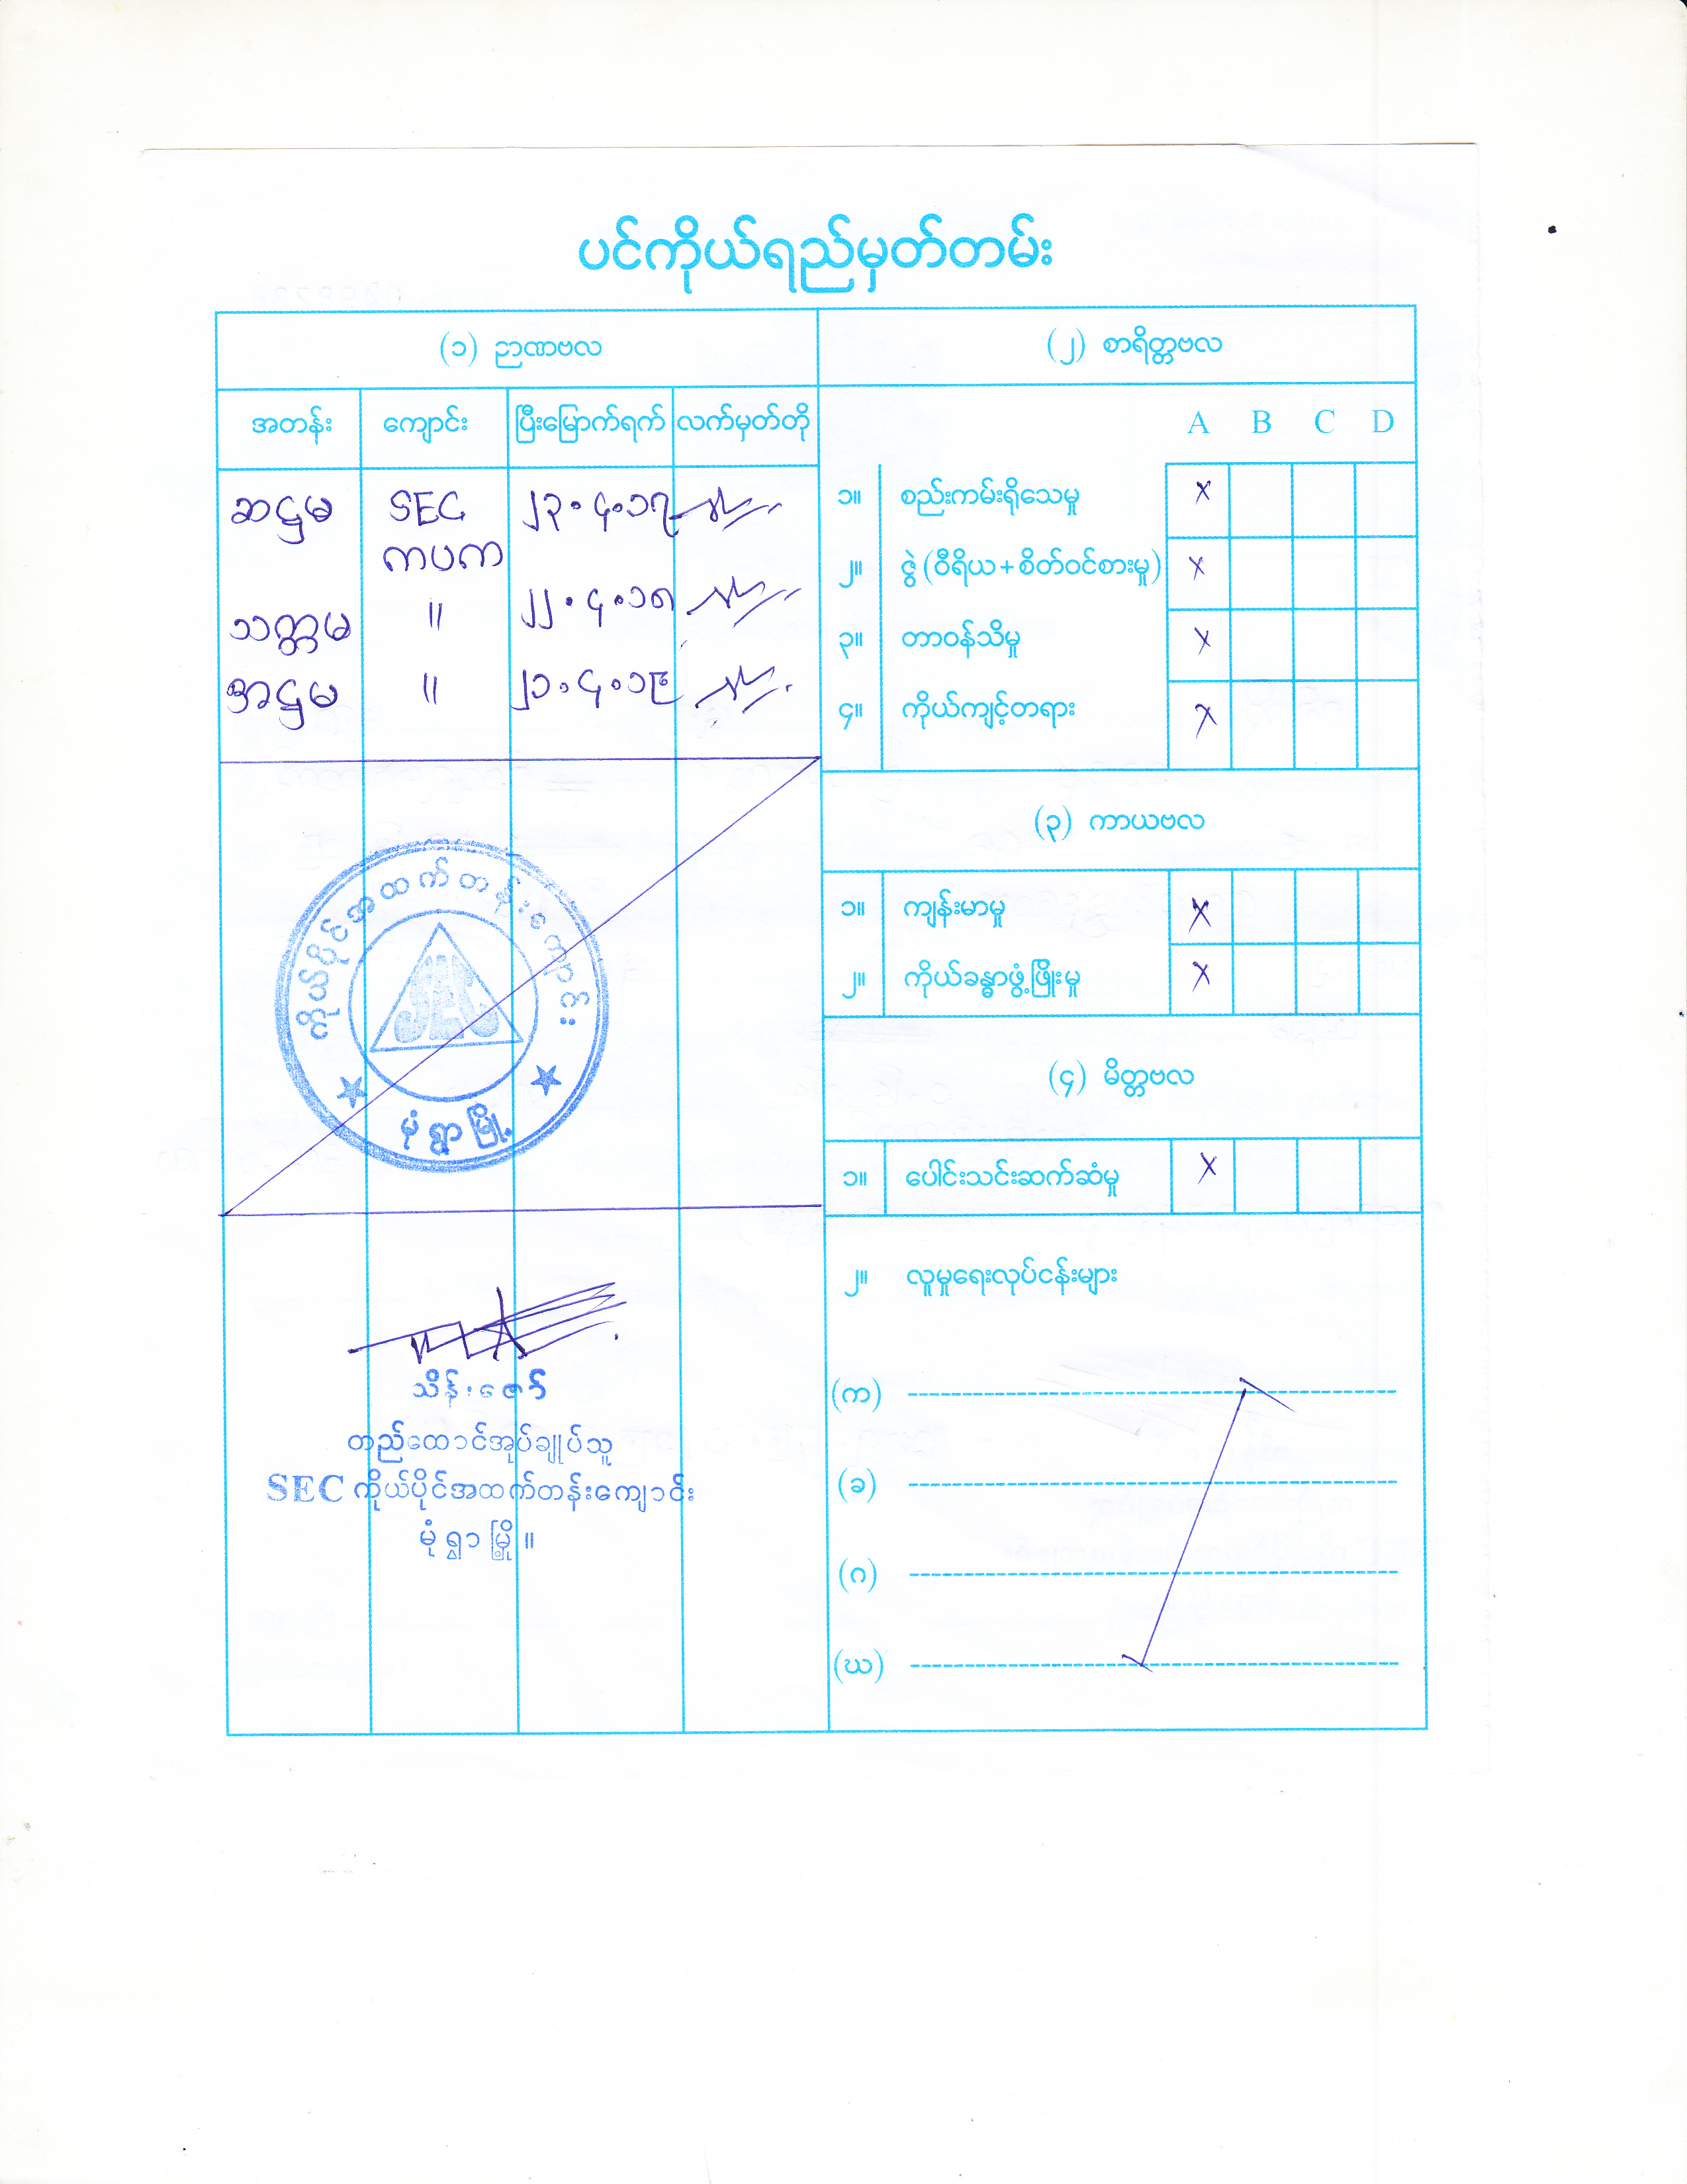 ပင်ကိုယ်ရည်မှတ်တမ်း
(၁) ဉာဏဗလ
အတန်း ကျောင်း ပြီးမြောက်ရက် လက်မှတ်တို
ဆဋ္ဌမ SEC ၂၃.၄.၁၇
ကပက
သတ္တမ " ၂၂.၄.၁၈
အဋ္ဌမ " ၂၁.၄.၁၉
ကိုယ်ပိုင်အထက်တန်းကျောင်း
SEC
မုံရွာမြို့
သိန်းဇော်
တည်ထောင်အုပ်ချုပ်သူ
SEC ကိုယ်ပိုင်အထက်တန်းကျောင်း
မုံရွာမြို့။
(၂) စာရိတ္တဗလ
A B C D
၁။ စည်းကမ်းရိုသေမှု X
၂။ ဇွဲ (ဝီရိယ + စိတ်ဝင်စားမှု) X
၃။ တာဝန်သိမှု X
၄။ ကိုယ်ကျင့်တရား X
(၃) ကာယဗလ
၁။ ကျန်းမာမှု X
၂။ ကိုယ်ခန္ဓာဖွံ့ဖြိုးမှု X
(၄) မိတ္တဗလ
၁။ ပေါင်းသင်းဆက်ဆံမှု X
၂။ လူမှုရေးလုပ်ငန်းများ
(က)
(ခ)
(ဂ)
(ဃ)